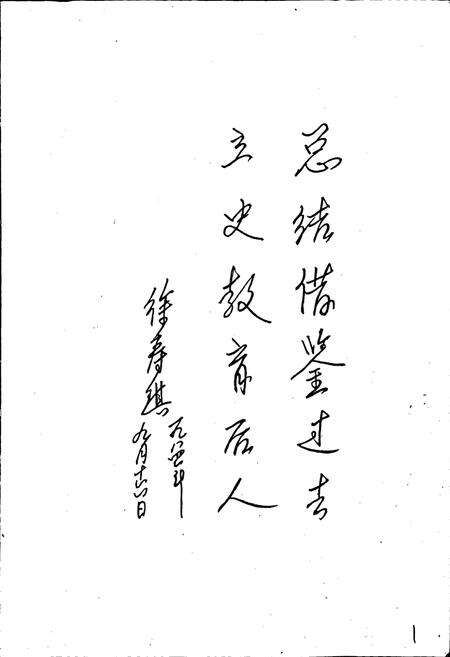 总结借鉴过去
立史教育后人
徐寿琪
一九八四年
九月十六日
1